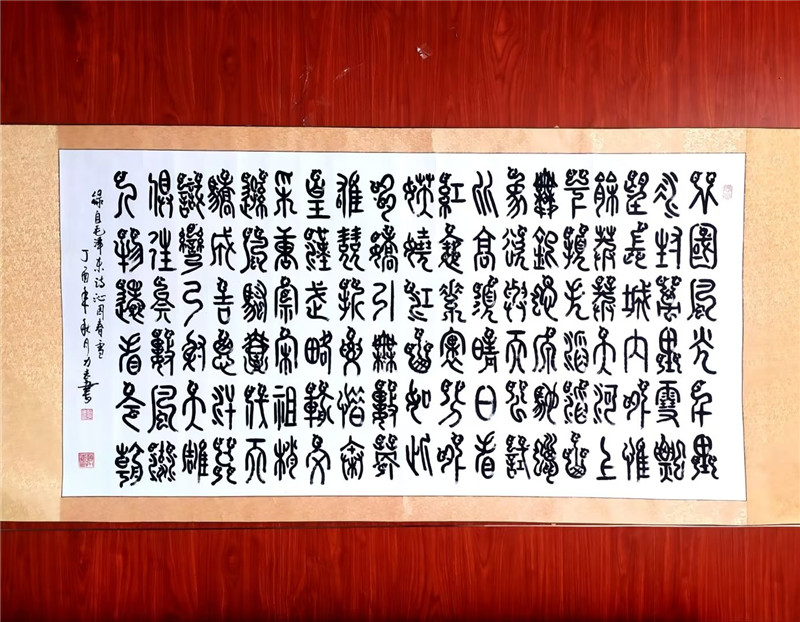 北國風光千里
冰封萬里雪飄
望長城內外惟
餘莽莽大河上
下頓失滔滔山
舞銀蛇原馳蠟
象欲與天公試
比高須晴日看
紅裝素裹分外
妖嬈江山如此
多嬌引無數英
雄競折腰惜秦
皇漢武略輸文
采唐宗宋祖稍
遜風騷一代天
驕成吉思汗只
識彎弓射大雕
俱往矣數風流
人物還看今朝
錄自毛澤東詩沁園春雪
丁酉年秋月書